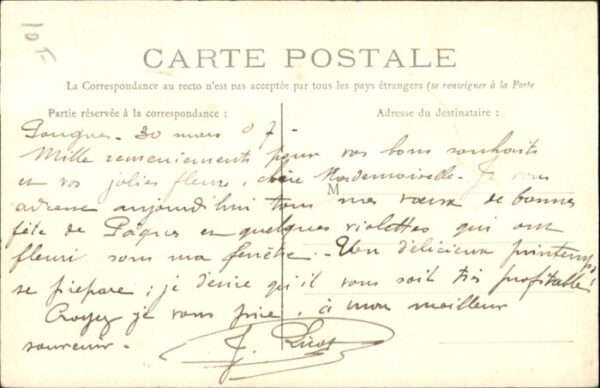 10f
CARTE POSTALE
La Correspondance au recto n'est pas acceptée par tous les pays étrangers (se renseigner à la Porte
Partie réservée à la correspondance :
Adresse du destinataire :
Pougues - 30 mars 07 -
Mille remerciements pour vos bons souhaits
et vos jolies fleurs, chère Mademoiselle - Je vous
M
adresse aujourd'hui tous mes vœux de bonnes
fête de Pâques et quelques violettes qui ont
fleuri sous ma fenêtre - Un délicieux printemps
se prépare ; je désire qu'il vous soit très profitable !
Croyez je vous prie, à mon meilleur
souvenir -